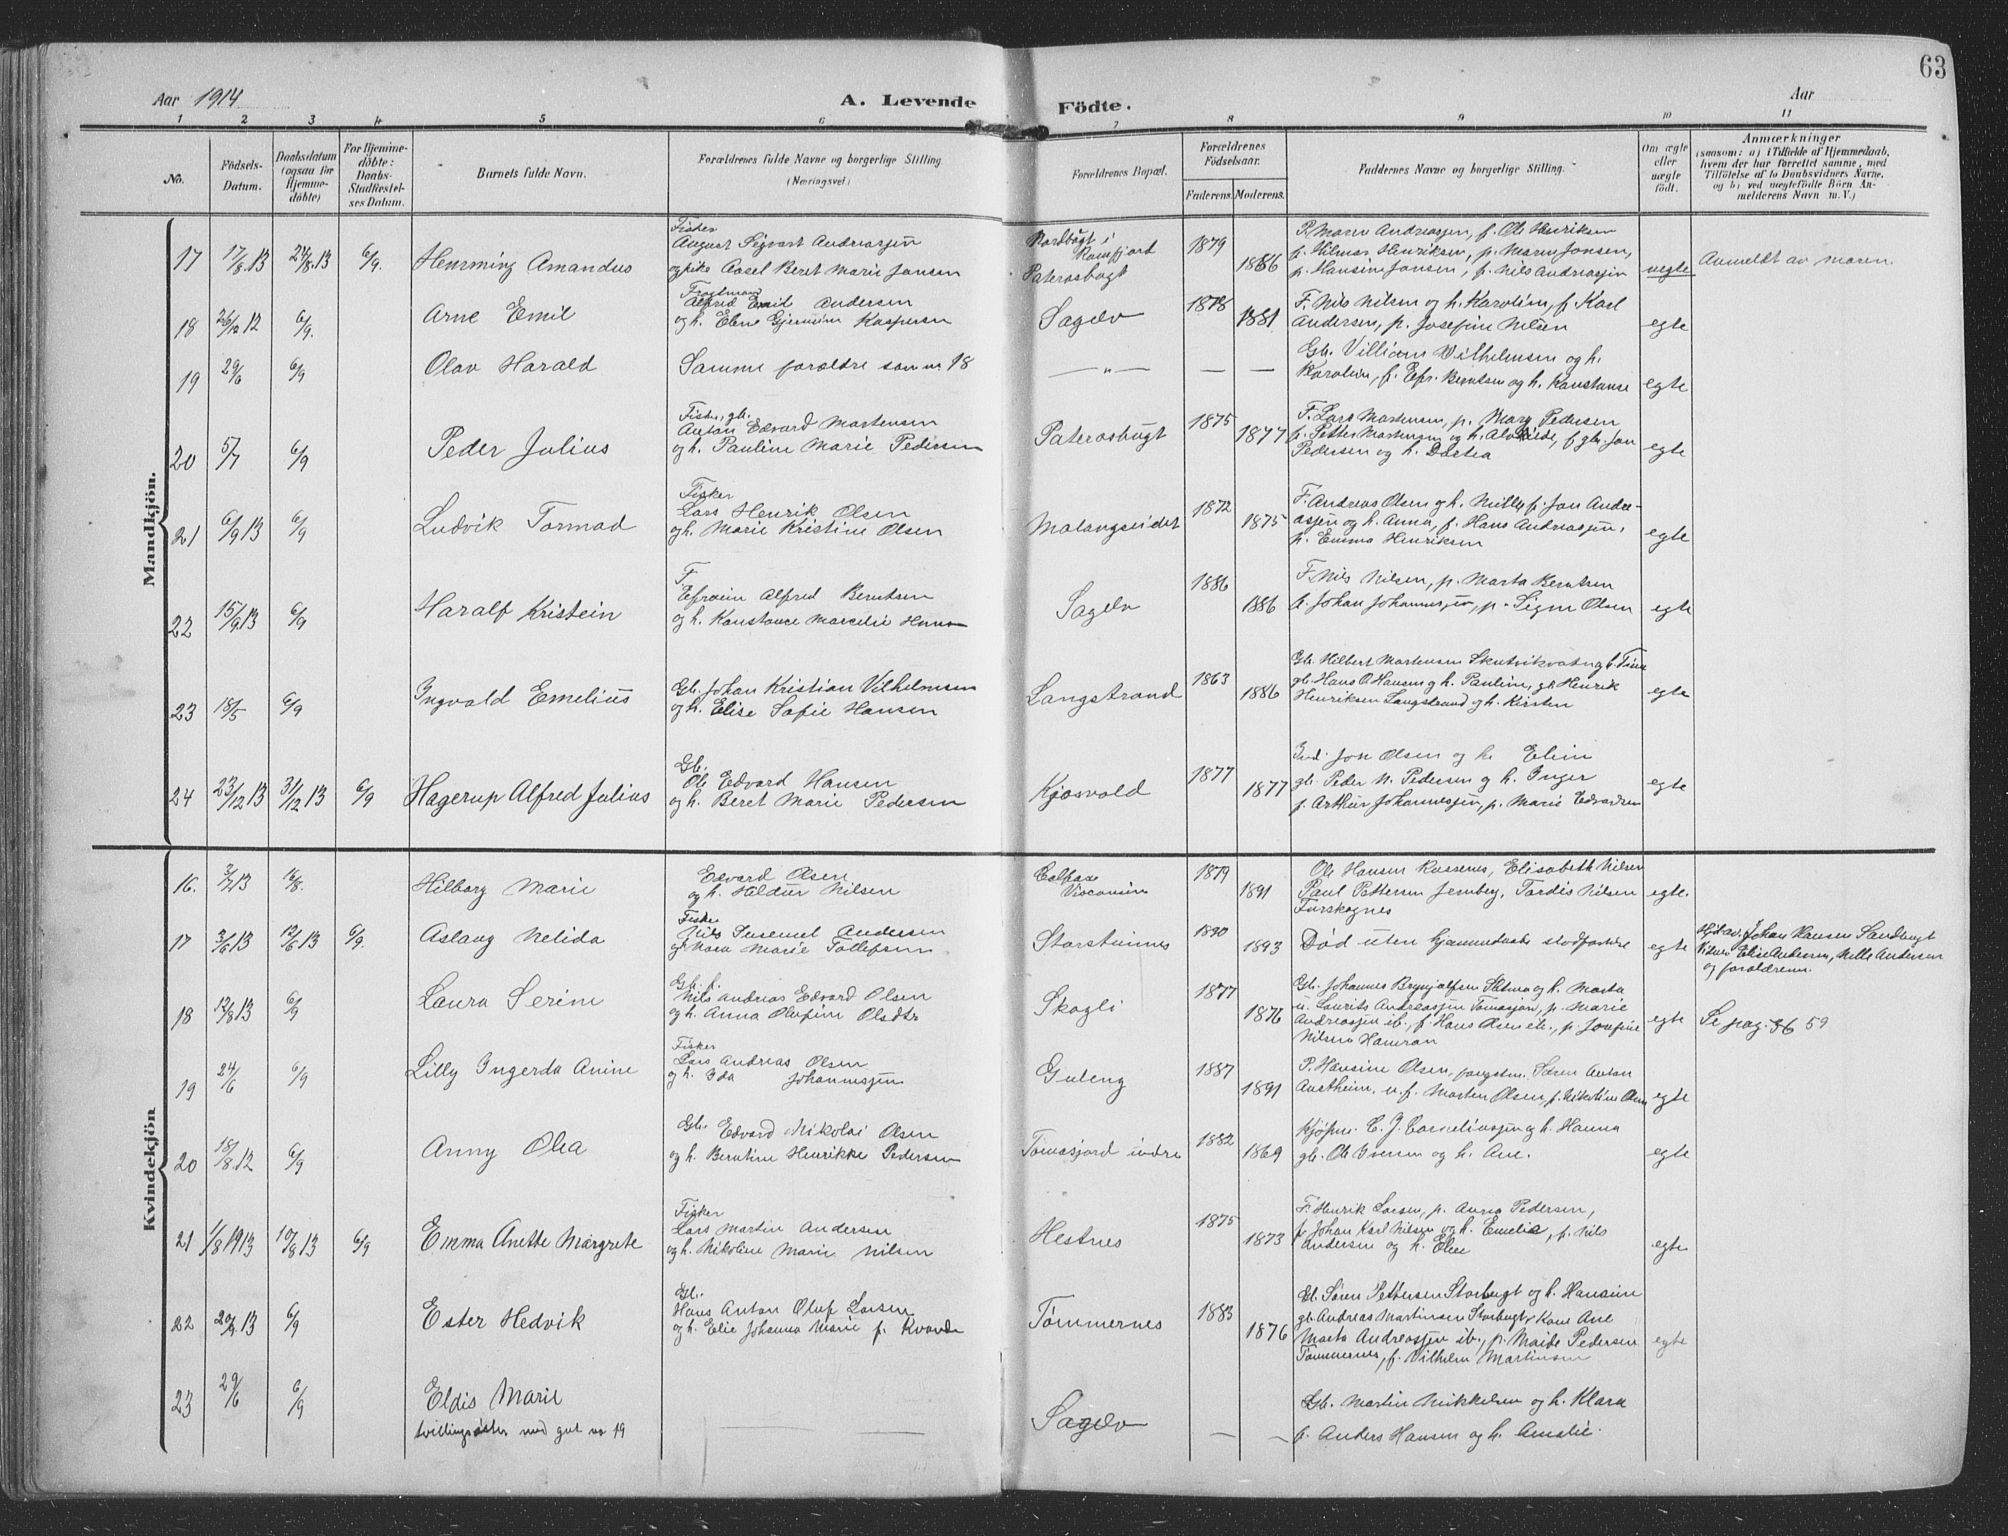 63
Aar 1914
A. Levende Födte.
Aar
1 2 3 4 5 6 7 8 9 10 11
No.
Födsels-Datum.
Daabsdatum (ogsaa for Hjemme-döbte)
For Hjemme-döbte: Daabs-Stadfæstel-ses Datum.
Barnets fulde Navn.
Forældrenes fulde Navne og borgerlige Stilling (Næringsvei)
Forældrenes Bopæl.
Forældrenes Födselsaar.
Faderens. Moderens.
Faddernes Navne og borgerlige Stilling.
Om ægte eller uægte födt.
Anmærkninger
(saasom: a) i Tilfælde af Hjemmedaab, hvem der har forrettet samme, med Tilföielse af to Daabsvidners Navne, og b) ved uægtefödte Börn An-melderens Navn m. V.)
Mandkjön.
17 17/8.13 24/8.13 6/9. Hemming Amandus
Fisker
August Sigvart Andreassen
og pike Aasel Beret Marie Jansen
Nordbugt i Ramfjord
Paterasbugt
1879 1886
P. Maren Andreassen, f. Ole Henriksen
f. Hilmar Henriksen, p. Maren Jansen,
p. Hansine Jansen, f. Nils Andreassen
uegte
Anmeldt av moren
18 6/9. Arne Emil
Alfred Emil Andersen
og h. Elene Kaspersen
Sagelv
1878 1881
F. Nils Nilsen og h. Karoline, f. Karl
Andersen, p. Josefine Nilsen
egte
19 29/6 6/9 Olav Harald
Samme foreldre som nr 18
— " — — —
Gb. Villiam Vilhelmsen og h.
Karoline, f. Efr. Berntsen og h. Konstanse
egte
20 5/7 6/9 Peder Julius
Fisker, gb.
Anton Edvard Martensen
og h. Pauline Marie Pedersen
Paterasbugt
1875 1877
F. Lars Martensen, p. Mary Pedersen
f. Petter Martensen og h. Alvhilde, f. gb. Jan
Pedersen og h. Dortea
egte
21 6/9 13 6/9 Ludvik Tormod
Fisker
Lars Henrik Olsen
og h. Marie Kristine Olsen
Malangseidet
1872 1875
F. Andreas Olsen og h. Milly f. Jan Andre-
assen og h. Anna, f. Hans Andreassen,
p. Emma Henriksen
egte
22 15/9.13 6/9 Haralf Kristein
F.
Efraim Alfred Berntsen
og h. Konstance Marcelie
Sagelv
1886 1886
F. Nils Nilsen, p. Marta Berntsen
f. Johan Johannessen, p. Signe Olsen
egte
23 18/5 6/9 Ingvald Emelius
Gb. Johan Kristian Vilhelmsen
og h. Elise Sofie Hansen
Langstrand
1863 1886
Gb. Hilbert Martensen Skutvikvatn og h. Tina
gb. Hans O. Hansen og h. Pauline, gb. Henrik
Henriksen Langstrand og h. Kirsten
egte
24 23/12 13 31/12 13 6/9 Hagerup Alfred Julius
Gb.
Ole Edvard Hansen
og h. Beret Marie Pedersen
Kjosvold
1877 1877
Jon Olsen og h. Elin
gb. Peder N. Pedersen og h. Inger
f. Arthur Johannessen, p. Marie Edvardsen
egte
Kvindekjön
16. 3/7 13 Hilborg Marie
Edvard Olsen
og h. Hildur Nilsen
Colfax
Visconsin
1879 1891
Ole Hansen Russenes, Elisabeth Nilsen
Paul Pettersen Jernberg, Tordis Nilsen
egte.
17 3/6 13 12/6 13 6/9. Aslaug Nelida
Fisker
Nils Andersen
og h. Marie Tollefsen
Storsteinnes
1890 1893
Død uten hjemmedaabs stadfæstelse
egte
Johan Hansen Sandbugt
Elise Andersen, Andersen
og foreldrene
18 12/8 13 6/9 Laura Serine
Gb. f.
Nils Andreas Edvard Olsen
og h. Anna Olufine Olsdtr
Skogli
1877 1876
Gb. Johannes Brynjolfsen og h. Marta
u. Laurits Andreassen Tomasjon, p. Marie
Andreassen ib., f. Hans Olsen ib., p. Josefine
Nilsen
egte
Se pag. 36 59
19 24/6 6/9 Lilly Ingerda Anine
Fisker
Lars Andreas Olsen
og h. Ida Johannessen
Guleng
1887 1891
P. Hansine Olsen, Søren Anton
Austheim, u. f. Morten Olsen, p. Nikoline Olsen
egte
20 18/8 12 6/9 Anny Olea
Gb. Edvard Nikolai Olsen
og h. Berntine Henrikke Pedersen
Tomasjord indre
1882 1869
Kjøpm. C. J. Corneliussen og h. Hanna
gb. Ole Iversen og h. Ane.
egte
21 1/8 1913 10/8 13 6/9 Emma Anette Margrete
Fisker
Lars Martin Andersen
og h. Nikoline Marie Nilsen
Hestnes
1875 1873
F. Henrik Larsen, p. Anna Pedersen,
f. Johan Karl Nilsen og h. Emelie, f. Nils
Andersen og h. Elen
egte
22 13 6/9 Ester Hedvik
Gb.
Hans Anton Oluf Larsen
og h. Elie Johanna Marie f. Kvande
Tømmernes
1883 1876
Gb. Søren Pettersen Storbugt og h. Hansine
gb. Andreas Martinsen Storbugt, Kone Ane
Marta Andreassen ib., p. Maide Pedersen
Tømmernes, f. Vilhelm Martinsen
egte
23 29/6 6/9 Eldis Marie
tvillingsøster med gut no 19
Sagelv
— —
Gb. Martin Mikkelsen og h. Klara
f. Anders Hansen og h. Amalie.